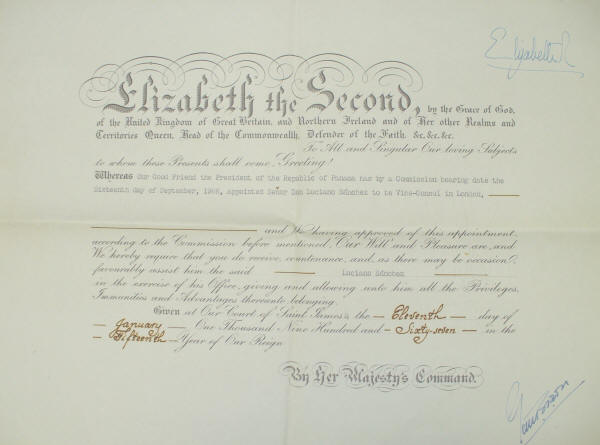 Elizabeth R
Elizabeth the Second, by the Grace of God,
of the United Kingdom of Great Britain, and Northern Ireland and of Her other Realms and
Territories Queen, Head of the Commonwealth, Defender of the Faith, &c, &c, &c.
To All and Singular Our loving Subjects
to whom these Presents shall come, Greeting!
Whereas Our Good Friend the President of the Republic of Panama has by a Commission bearing date the
Sixteenth day of September, 1966, appointed Señor Don Luciano Sánchez to be Vice-Consul in London,
and We having approved of this appointment
according to the Commission before mentioned, Our Will and Pleasure are, and
We hereby require that you do receive, countenance, and, as there may be occasion,
favourably assist him the said Luciano Sánchez
in the exercise of his Office, giving and allowing unto him all the Privileges,
Immunities and Advantages thereunto belonging.
Given at Our Court of Saint James's, the Eleventh day of
January One Thousand Nine Hundred and Sixty-seven in the
Fifteenth Year of Our Reign
By Her Majesty's Command.